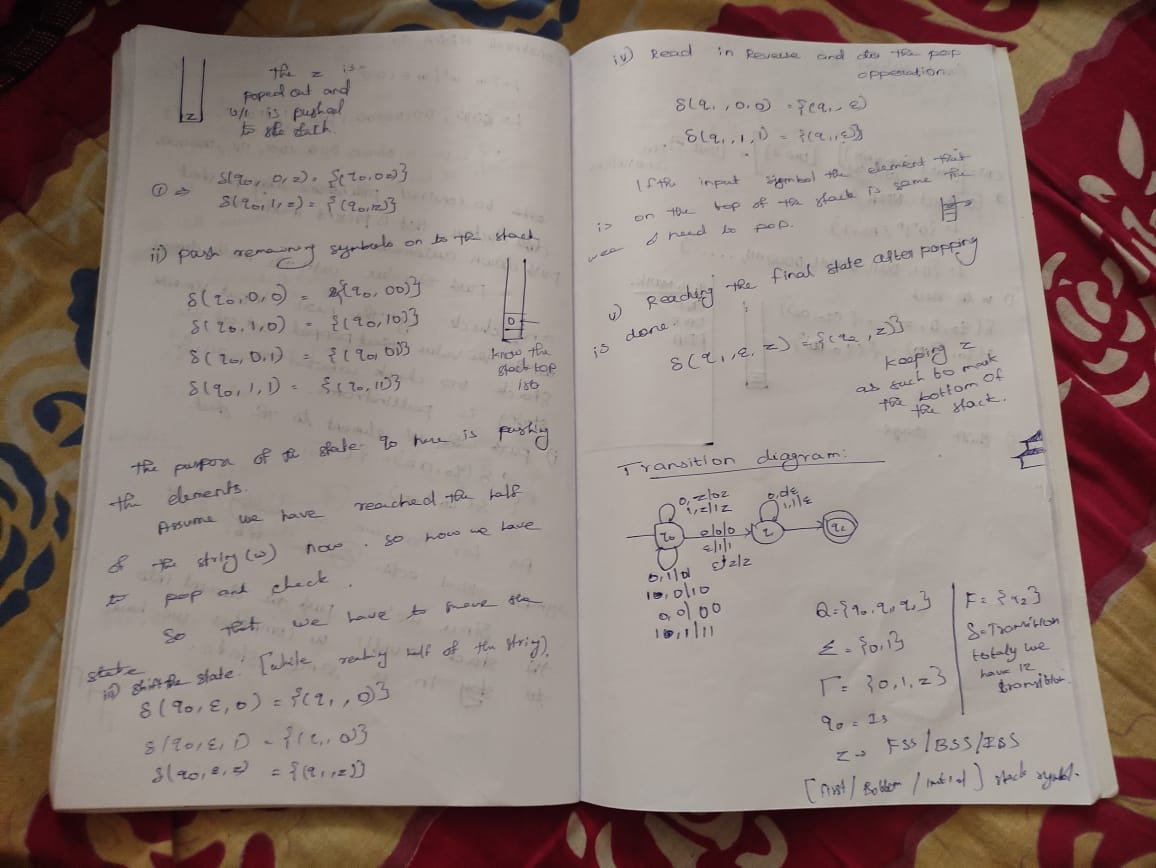 the z is
poped out and
0/1 is pushed
to the stack.
z
① ⇒ δ(q0, 0, z) = {(q0, 0z)}
δ(q0, 1, z) = {(q0, 1z)}
ii) push remaining symbols on to the stack
δ(q0, 0, 0) = {(q0, 00)}
δ(q0, 1, 0) = {(q0, 10)}
δ(q0, 0, 1) = {(q0, 01)}
δ(q0, 1, 1) = {(q0, 11)}
0
know the
stack top
is 0
the purpose of the state q0 here is pushing
the elements.
Assume we have reached the half
of the string (w) now. so now we have
to pop and check.
So that we have to move the
state
iii) shift the state. [while reading half of the string).
δ(q0, ε, 0) = {(q1, 0)}
δ(q0, ε, 1) = {(q1, )}
δ(q0, ε, z) = {(q1, z)}
iv) Read in Reverse and do the pop
opperation.
δ(q1, 0, 0) = {(q1, ε)
δ(q1, 1, 1) = {(q1, ε)}
If the input symbol the element that
is on the top of the stack is same the
need to pop.
v) Reaching the final state after popping
is done.
δ(q1, ε, z) = {(q2, z)}
keeping z
as such to mark
the bottom of
the stack.
Transition diagram:
0, z/0z
1, z/1z
0, 0/ε
1, 1/ε
q0
ε/1/1
ε/z/z
q1
q2
0, 1/01
1, 0/10
0, 0/00
1, 1/11
Q = {q0, q1, q2}
Σ = {0, 1}
Γ = {0, 1, z}
q0 = Is
z → FSS/BSS/ISS
[First/Bottom/initial] stack symbol.
F = {q2}
δ = Transition
totaly we
have 12
transition.